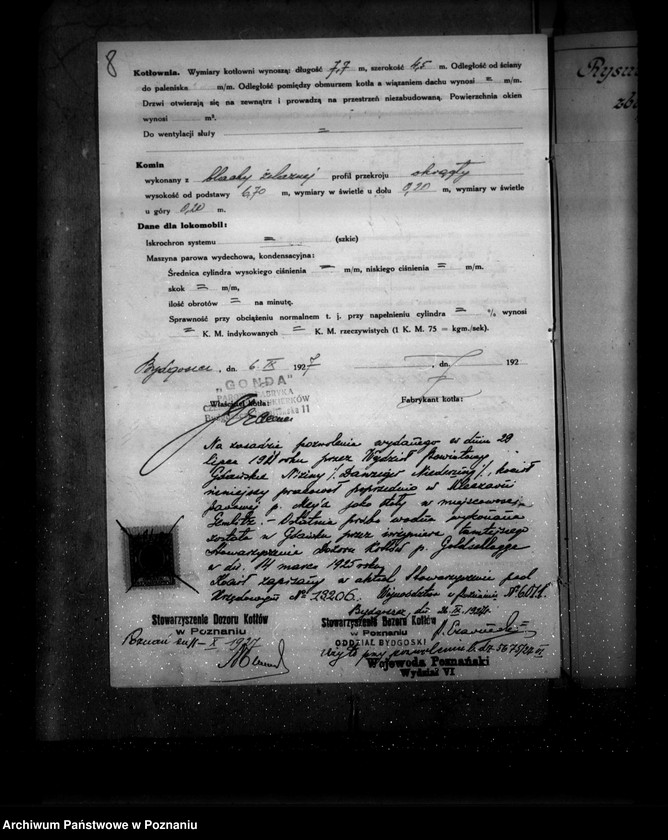 8
Kotłownia. Wymiary kotłowni wynoszą: długość 7,7 m, szerokość 4,5 m. Odległość od ściany
do paleniska m/m. Odległość pomiędzy obmurzem kotła a wiązaniem dachu wynosi = m/m.
Drzwi otwierają się na zewnątrz i prowadzą na przestrzeń niezabudowaną. Powierzchnia okien
wynosi m².
Do wentylacji służy =
Komin
wykonany z blachy żelaznej profil przekroju okrągły
wysokość od podstawy 6,70 m, wymiary w świetle u dołu 0,20 m, wymiary w świetle
u góry 0,20 m.
Dane dla lokomobil:
Iskrochron systemu = (szkic)
Maszyna parowa wydechowa, kondensacyjna:
Średnica cylindra wysokiego ciśnienia = m/m, niskiego ciśnienia = m/m.
skok = m/m,
ilość obrotów = na minutę.
Sprawność przy obciążeniu normalnem t. j. przy napełnieniu cylindra = % wynosi
= K. M. indykowanych = K. M. rzeczywistych (1 K. M. 75 = kgm./sek).
Bydgoszcz, dn. 6. IX 1927
, dn. 192
"GONDA"
Właściciel kotła:
Fabrykant kotła:
Na zasadzie pozwolenia wydanego w dniu 29
lipca 1921 roku przez Wydział Powiatowy
Gdańskie Niziny /Danziger Niederung/, kocioł
niniejszy pracował poprzednio w Mleczarni
parowej p. jako stały w miejscowości
Ostatnia próba wodna wykonana
została w Gdańsku przez inżyniera tamtejszego
Stowarzyszenia dozoru Kotłów p. Goldschlagge
w dn. 14 marca 1925 roku
Kocioł zapisany w aktach Stowarzyszenia pod
№ 13206.
Bydgoszcz, dn. IX. 1927.
Stowarzyszenie Dozoru Kotłów
w Poznaniu
Poznań dn. X 1927
Stowarzyszenie Dozoru Kotłów
w Poznaniu
ODDZIAŁ BYDGOSKI
Użyto przy pozwoleniu L. dz. 5675/27 VI
Wojewoda Poznański
Wydział VI
Rysun
zb
Archiwum Państwowe w Poznaniu